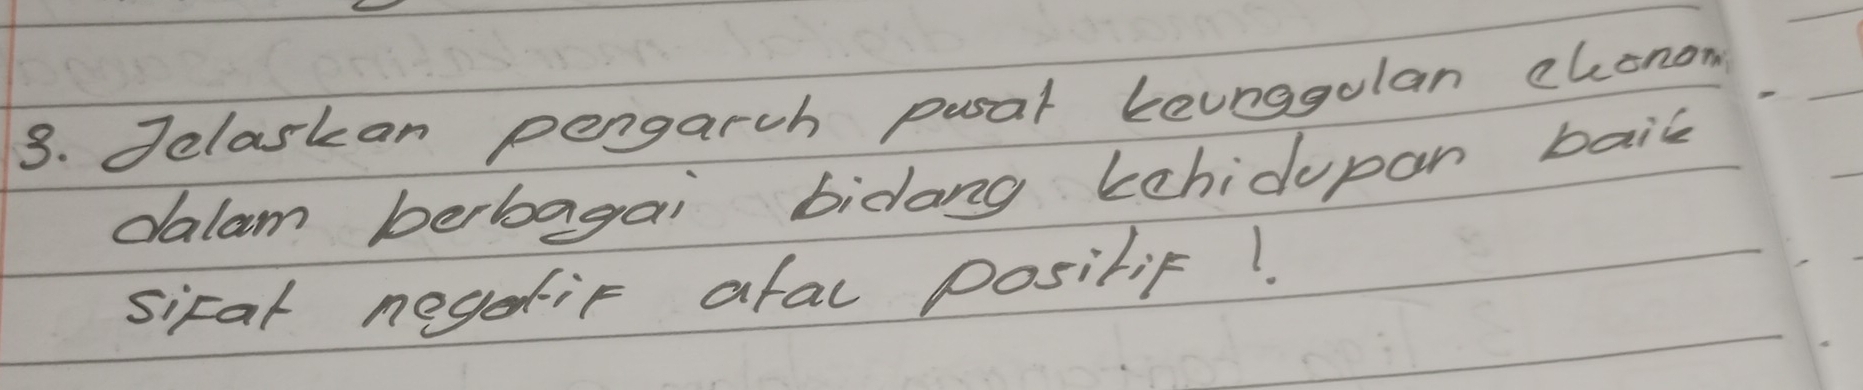 3. Jelaskan pengaruh pusat keunggulan ekonomi
dalam berbagai bidang kehidupan baik
sifat negatif atau positif !